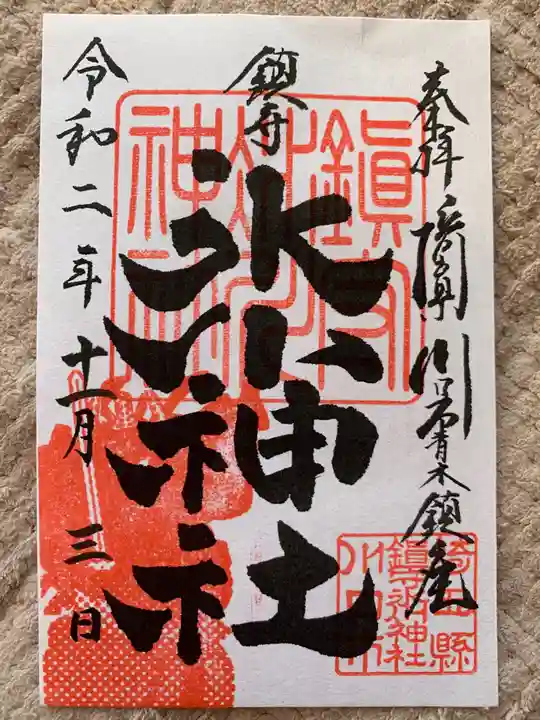 奉拝 川口青木鎮座
鎮守
氷川神社
令和二年十一月三日
鎮守
氷川
神社
埼玉縣
鎮守氷川神社
川口市